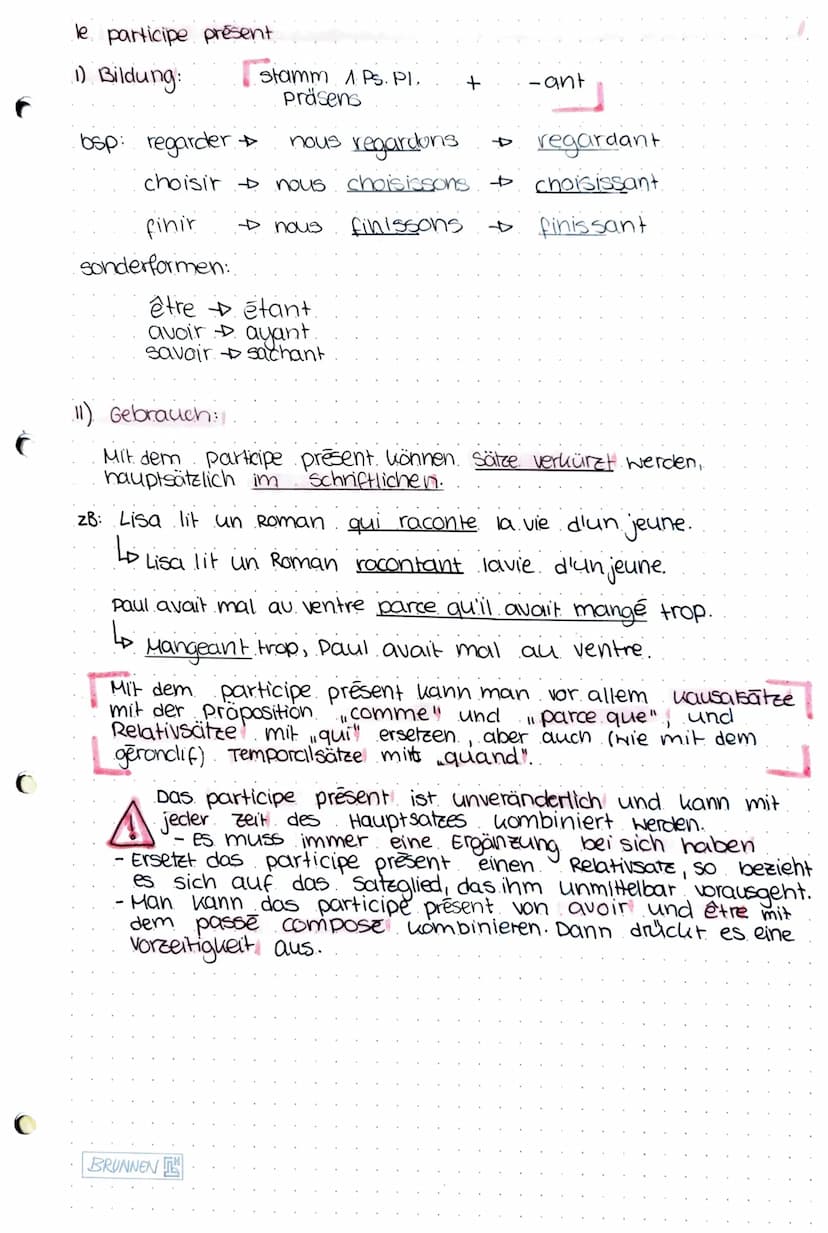 le participe présent
I) Bildung: Stamm 1 Ps. Pl. + -ant
Präsens
bsp: regarder → nous regardons → regardant
choisir → nous choisissons → choisissant
finir → nous finissons → finissant
sonderformen:
être → étant
avoir → ayant
savoir → sachant
II) Gebrauch:
Mit dem participe présent können Sätze verkürzt werden,
hauptsätzlich im schriftlichen.
zB: Lisa lit un Roman qui raconte la vie d'un jeune.
↳ Lisa lit un Roman racontant la vie d'un jeune.
Paul avait mal au ventre parce qu'il avait mangé trop.
↳ Mangeant trop, Paul avait mal au ventre.
Mit dem participe présent kann man vor allem Kausalsätze
mit der Präposition „comme" und „parce que", und
Relativsätze mit „qui" ersetzen, aber auch (wie mit dem
gérondif) Temporalsätze mit „quand".
Das participe présent ist unveränderlich und kann mit
jeder Zeit des Hauptsatzes kombiniert werden.
- Es muss immer eine Ergänzung bei sich haben
- Ersetzt das participe présent einen Relativsatz, so bezieht
es sich auf das Satzglied, das ihm unmittelbar vorausgeht.
- Man kann das participe présent von avoir und être mit
dem passé composé kombinieren. Dann drückt es eine
Vorzeitigkeit aus.
BRUNNEN